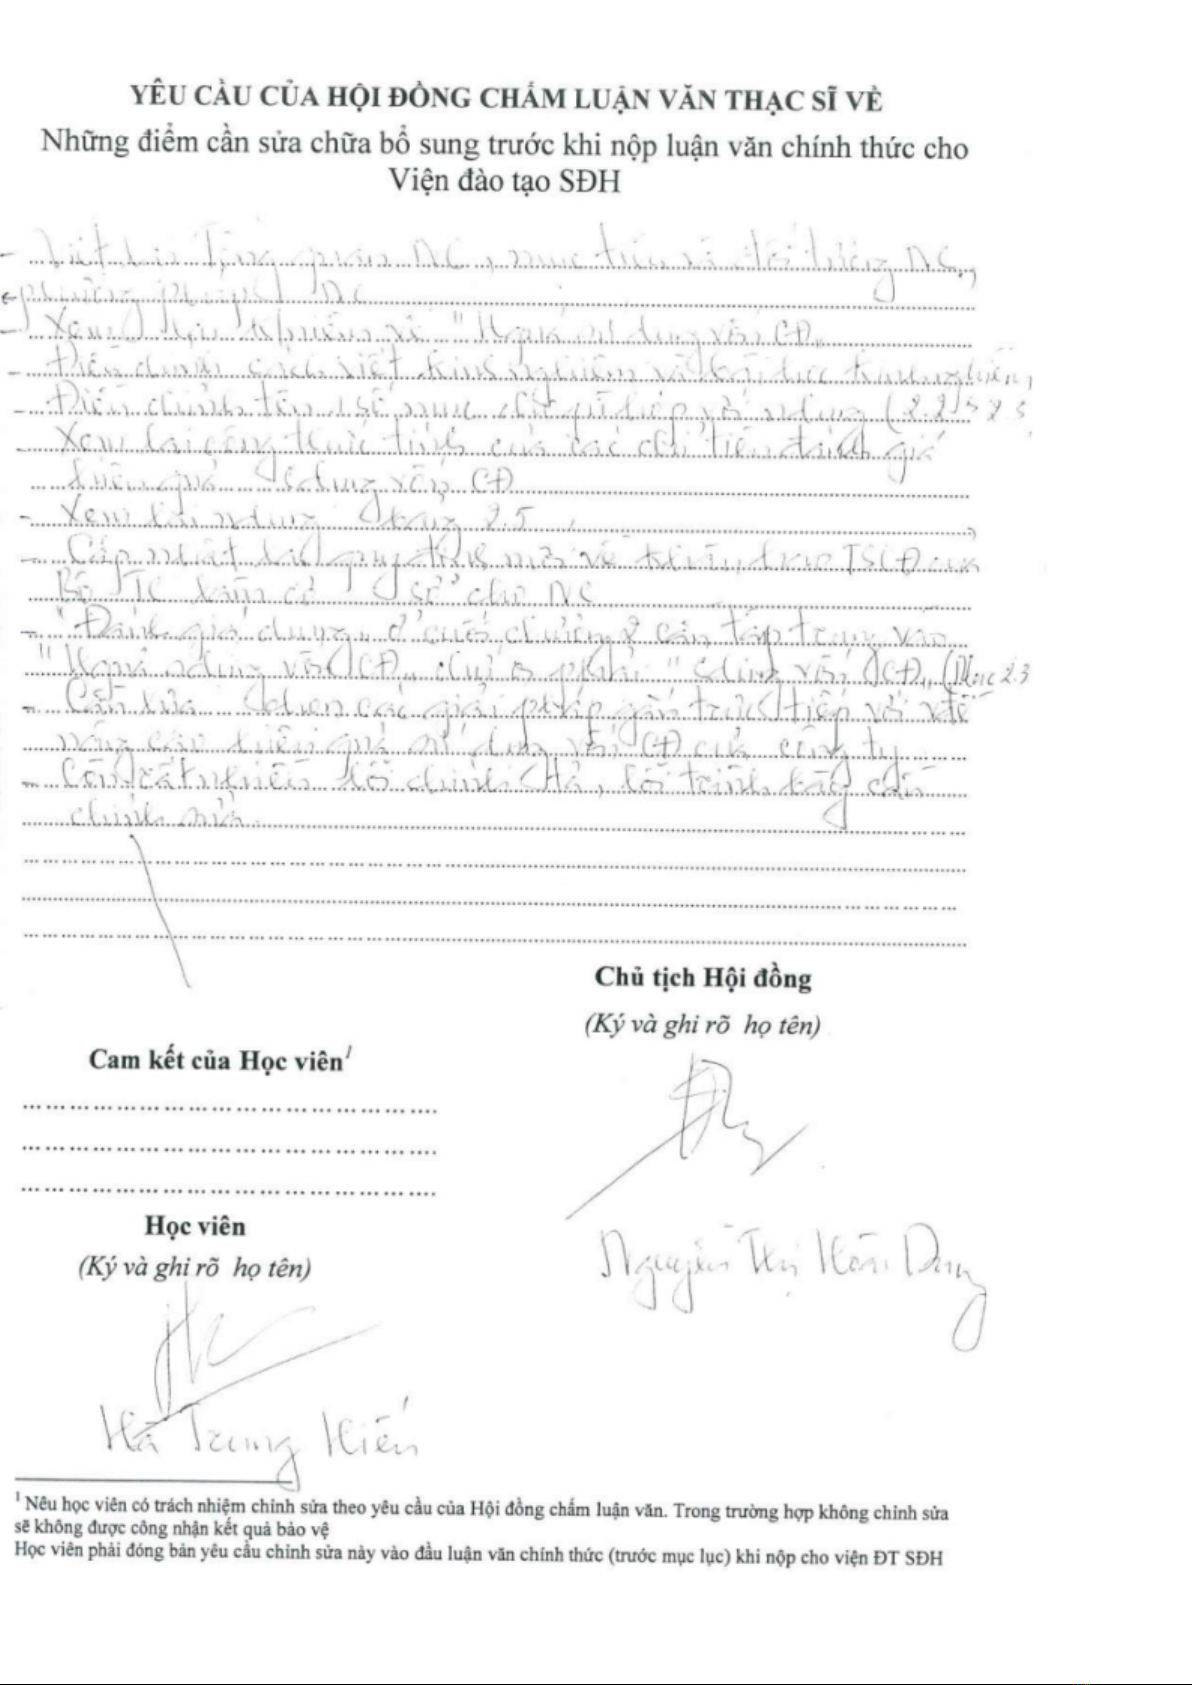 YÊU CẦU CỦA HỘI ĐỒNG CHẤM LUẬN VĂN THẠC SĨ VỀ
Những điểm cần sửa chữa bổ sung trước khi nộp luận văn chính thức cho
Viện đào tạo SĐH
- Viết lại Tổng quan NC, mục tiêu và đối tượng NC,
phương pháp NC
- Xem lại khái niệm về "Hquả sử dụng vốn CĐ"
- Điều chỉnh cách viết kinh nghiệm và bài học kinh nghiệm,
- Điều chỉnh tên 1 số mục với ndung (2.2) 2.3
- Xem lại công thức tính của các chỉ tiêu đánh giá
hiệu quả sdụng vốn CĐ
- Xem lại ndung bảng 2.5
- Cập nhật lại quy định mới về khấu hao TSCĐ của
Bộ TC làm cơ sở cho NC
- "Đánh giá chung" ở cuối chương 2 cần tập trung vào
"Hquả sdụng vốn CĐ" chứ o phải "sdụng vốn CĐ" (Mục 2.3
- Cần các giải pháp gắn trực tiếp với vđề
nâng cao hiệu quả sử dụng vốn CĐ của công ty
- Còn rất nhiều lỗi chính tả, lỗi trình bày cần
chỉnh sửa.
Chủ tịch Hội đồng
(Ký và ghi rõ họ tên)
Cam kết của Học viên¹
Học viên
(Ký và ghi rõ họ tên)
Nguyễn Thị Hoài Dung
Hà Trung Hiếu
¹ Nêu học viên có trách nhiệm chỉnh sửa theo yêu cầu của Hội đồng chấm luận văn. Trong trường hợp không chỉnh sửa
sẽ không được công nhận kết quả bảo vệ
Học viên phải đóng bản yêu cầu chỉnh sửa này vào đầu luận văn chính thức (trước mục lục) khi nộp cho viện ĐT SĐH